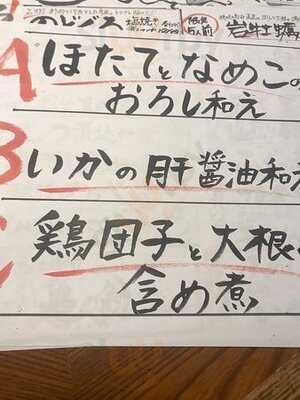 のどぐろ 塩焼き
限定
5人前
岩牡蠣
A ほたてとなめこの
おろし和え
B いかの肝醤油和え
C 鶏団子と大根
含め煮